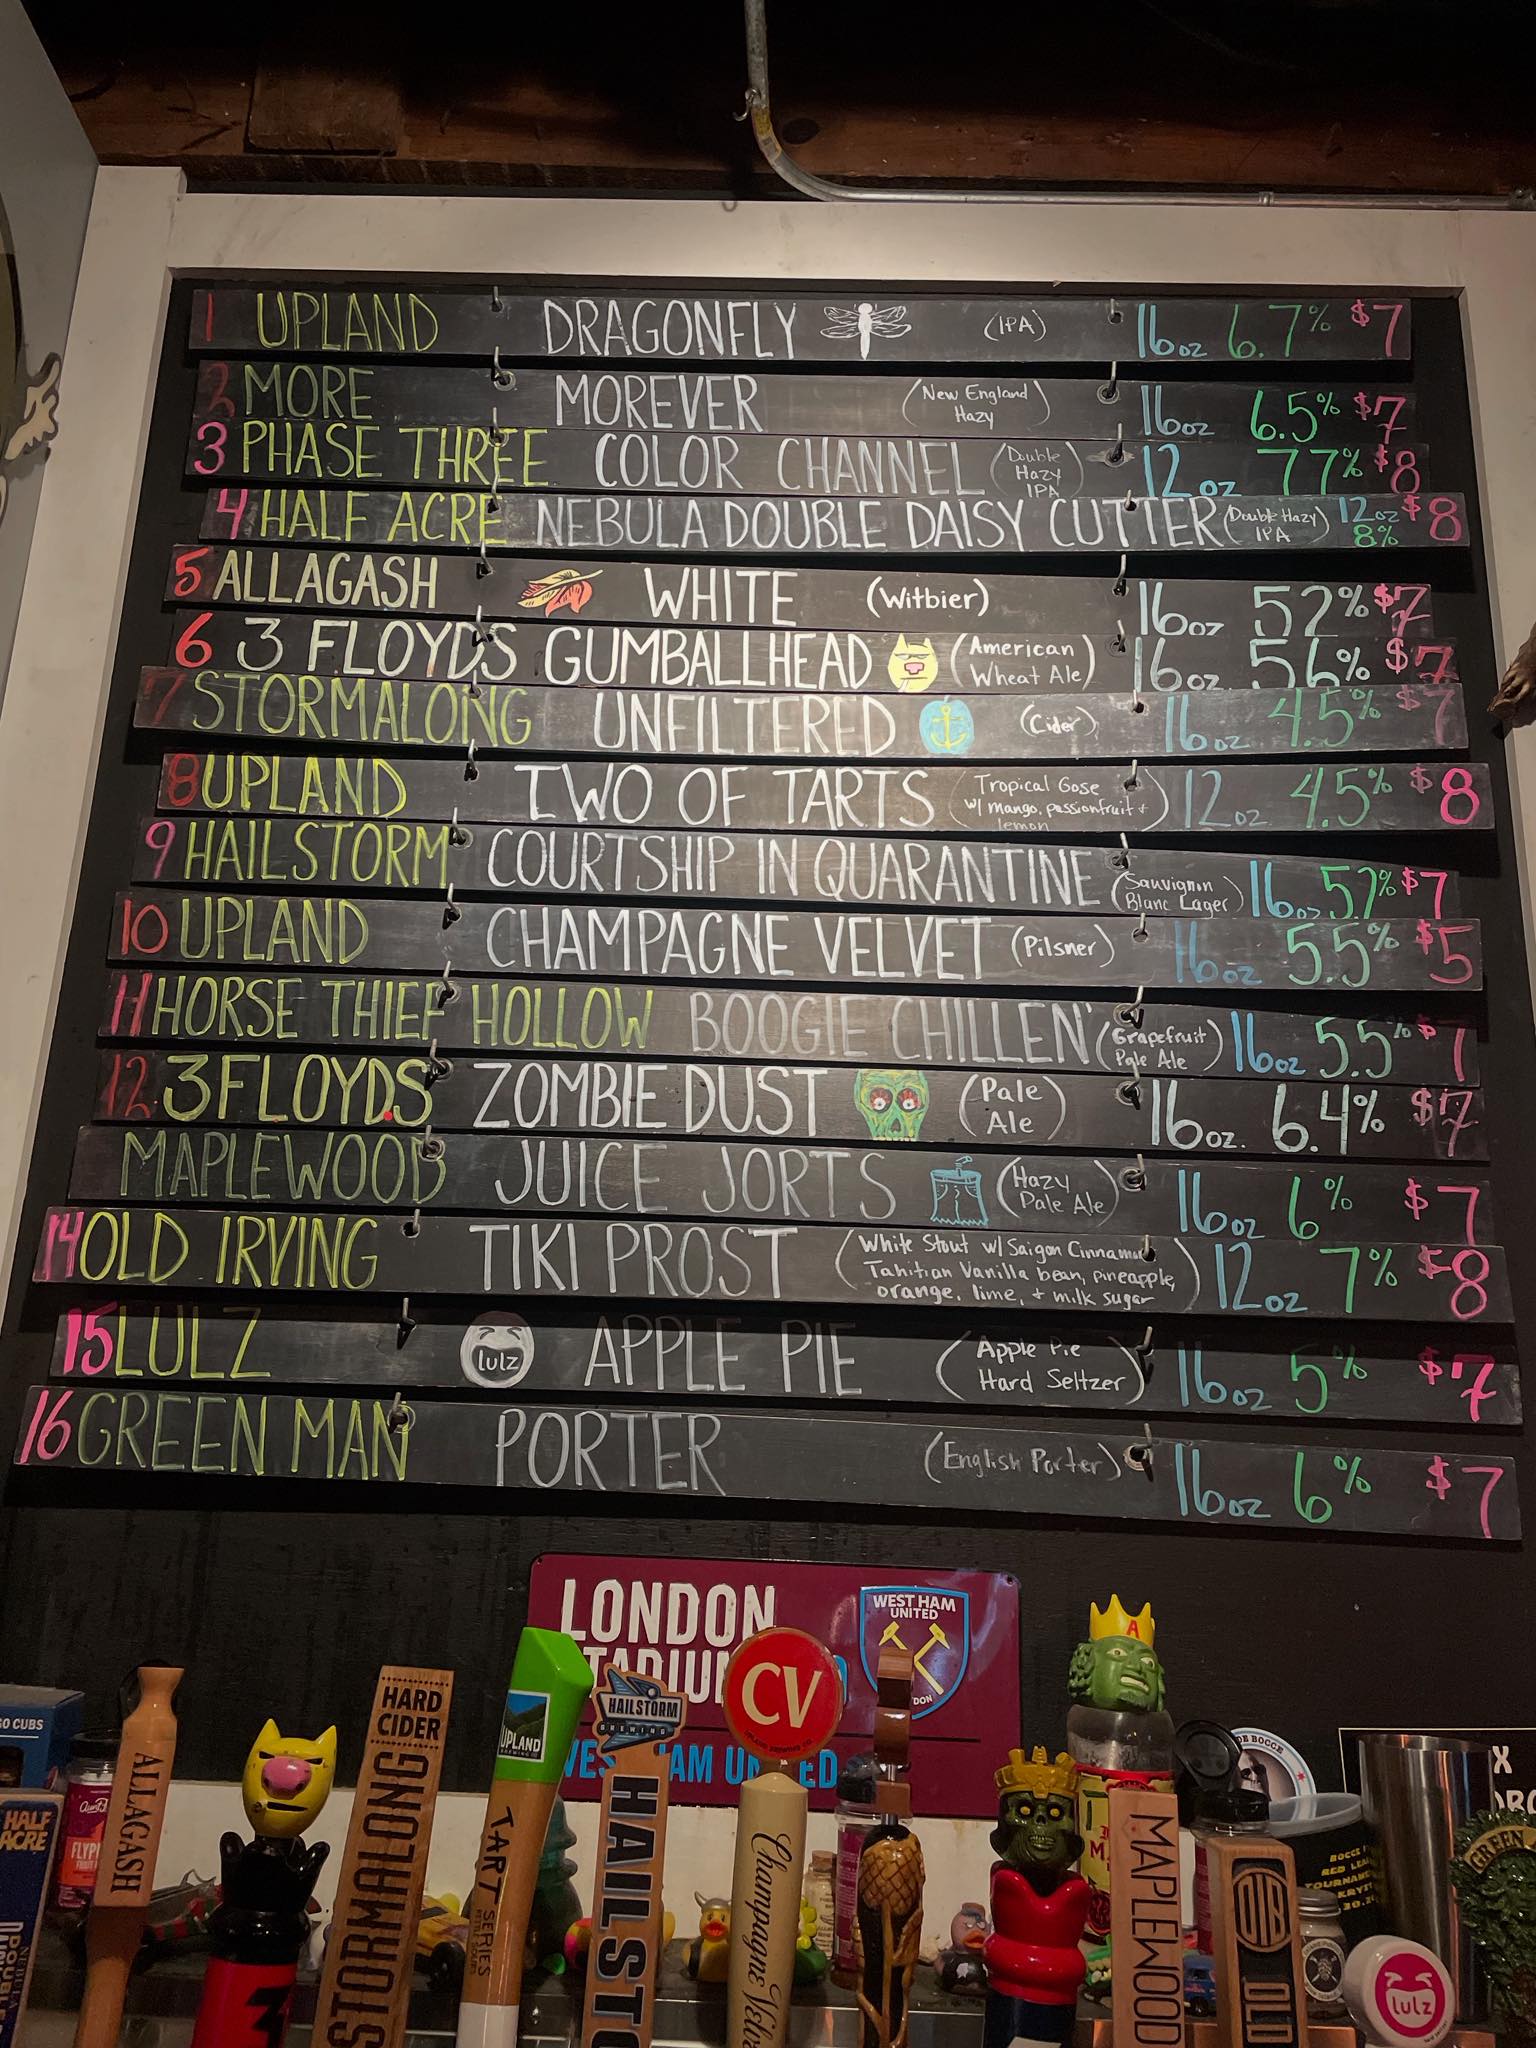 1 UPLAND DRAGONFLY (IPA) 16oz 6.7% $7
2 MORE MOREVER (New England Hazy) 16oz 6.5% $7
3 PHASE THREE COLOR CHANNEL (Double Hazy IPA) 12oz 7.7% $8
4 HALF ACRE NEBULA DOUBLE DAISY CUTTER (Double Hazy IPA) 12oz 8% $8
5 ALLAGASH WHITE (Witbier) 16oz 5.2% $7
6 3 FLOYDS GUMBALLHEAD (American Wheat Ale) 16oz. 5.6% $7
7 STORMALONG UNFILTERED (Cider) 16oz 4.5% $7
8 UPLAND TWO OF TARTS (Tropical Gose w/ mango, passionfruit + lemon) 12oz 4.5% $8
9 HAILSTORM COURTSHIP IN QUARANTINE (Sauvignon Blanc Lager) 16oz 5.7% $7
10 UPLAND CHAMPAGNE VELVET (Pilsner) 16oz 5.5% $5
11 HORSE THIEF HOLLOW BOOGIE CHILLEN' (Grapefruit Pale Ale) 16oz 5.5% $7
12 3 FLOYDS ZOMBIE DUST (Pale Ale) 16oz. 6.4% $7
MAPLEWOOD JUICE JORTS (Hazy Pale Ale) 16oz 6% $7
14 OLD IRVING TIKI PROST (White Stout w/ Saigon Cinnamon Tahitian Vanilla bean, pineapple, orange, lime, + milk sugar) 12oz 7% $8
15 LULZ lulz APPLE PIE (Apple Pie Hard Seltzer) 16oz 5% $7
16 GREEN MAN PORTER (English Porter) 16oz 6% $7
LONDON
STADIUM
WEST HAM
UNITED
WEST HAM UNITED
HALF
ACRE
ALLAGASH
HARD
CIDER
STORMALONG
UPLAND
TART
SERIES
HAILSTORM
BREWING
HAILSTO
CV
Champagne Velve
A
MAPLEWOOD
OIB
OLD
DE BOCCE
BOCCE
RED
TOURNAM
GREEN
lulz